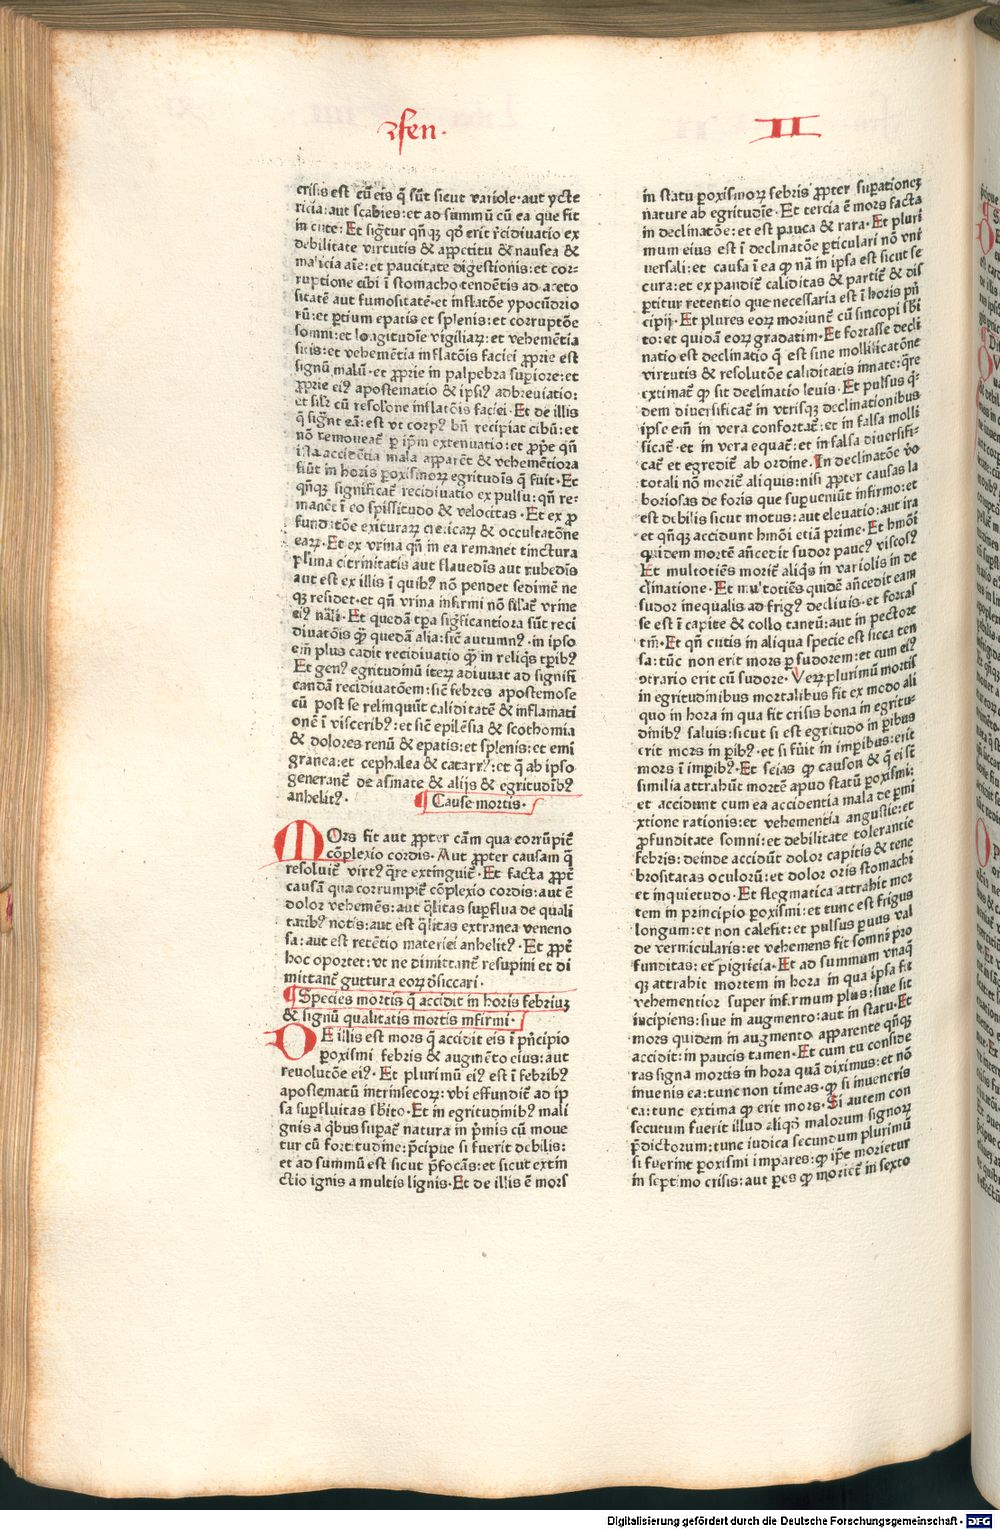 ꝛfen·
II
crisis est cū eis q̄ sūt sicut variole·aut ycte
ricia:aut scabies:et ad summū cū ea que fit
in cute: Et sigtur qn̄qꝫ qd̓ erit recidiuatio ex
debilitate virtutis & appetitu & nausea &
malicia aīe:et paucitate digestionis:et cor⸗
ruptione cibi ī stomacho tendētis ad aceto
sitatē aut fumositatē·et inflatōe ypocūdrio
rū:et ꝑtium epatis et splenis:et corruptōe
somni:et lōgitudīe vigiliaꝝ:et vehemētia
sitis:et vehemētia inflatōis faciei ꝓprie est
signū malū·et ꝓprie in palpebra suꝑiore:et
ꝓprie eiꝰ apostematio & ipsiꝰ adbreuiatio:
et sil'r cū resolōne inflatōis faciei·Et de illis
q̄ signt̄ eā:est vt corpꝰ bn̄ recipiat cibū:et
nō remoueat̄ ꝑ ip̄m extenuatio:et ꝓpe qn̄
ista accidētia mala apparēt & vehemētiora
fiūt in horis ꝑoxismoꝝ egritudīs q̄ fuit·Et
qn̄qꝫ significat̄ recidiuatio ex pulsu:qn̄ re⸗
manēt ī eo spissitudo & velocitas·Et ex ꝓ
funditōe exituraꝝ cieticaꝝ & occultatōne
eaꝝ·Et ex vrina qn̄ in ea remanet tinctura
plurima citrinitatis aut flauedīs aut rubedīs
aut est ex illis ī quibꝰ nō pendet sedimē ne
qꝫ residet·et qn̄ vrina infirmi nō sil'at̄ vrine
eiꝰ nāli·Et quedā tp̄a sig̓ficantiora sūt reci
diuatōis qꝫ quedā alia:sic̄ autumnꝰ·in ipso
em̄ plus cadit recidiuatio qꝫ in reliq̄s tꝑibꝰ
Et genꝰ egritudinū iteꝝ adiuuat ad signifi
candā recidiuatōem:sic̄ febres apostemose
cū post se relinquūt caliditatē & inflamati
onē ī visceribꝰ:et sic̄ epilēsia & scothomia
& dolores renū & epatis:et splenis:et emi
granea:et cephalea & catarrꝰ:et q̄ ab ipso
generant̄ de asmate & alijs & egritudībꝰ
anhelitꝰ·
¶ Cause mortis·
MOrs fit aut ꝓpter cām qua corrūpit̄
cōplexio cordis·Aut ꝓpter causam q̄
resoluit̄ virtꝰ qͥre extinguit̄·Et facta ꝓpt̄
causā qua corrumpit̄ cōplexio cordis:aut ē
dolor vehemēs:aut qͣlitas suꝑflua de quali
tatibꝰ notis:aut est qͣlitas extranea veneno
sa:aut est retētio materiei anhelitꝰ·Et ꝓpt̄
hoc oportet:vt ne dimittant̄ resupini et di
mittant̄ guttura eoꝝ d̓siccari·
¶ Species mortis q̄ accidit in horis febriuꝫ
& signū qualitatis mortis infirmi·
DE illis est mors q̄ accidit eis ī pn̄cipio
ꝑoxismi febris & augmēto eius:aut
reuolutōe eiꝰ·Et plurimū eiꝰ est ī febribꝰ
apostematū intrinsecoꝝ:vbi effundit̄ ad ip
sa suꝑfluitas sb̄ito·Et in egritudinibꝰ mali
gnis a qͥbus suꝑat̄ natura in p̄mis cū moue
tur cū fortitudine:pͥcipue si fuerit debilis:
et ad summū est sicut p̄focās:et sicut extin
ctio ignis a multis lignis·Et de illis ē mors
in statu ꝑoxismoꝝ febris ꝓpter suꝑationeꝫ
nature ab egritudīe·Et tercia ē mors facta
in declinatōe:et est pauca & rara·Et pluri
mum eius est ī declinatōe ꝑticulari nō vni
uersali:et causa ī ea qꝫ nā in ipsa est sicut se
cura:et expandit̄ caliditas & partit̄ & dis
ꝑtitur retentio que necessaria est ī horis pn̄
cipij·Et plures eoꝝ moriunt̄ cū sincopi sb̄i
to:et quidā eoꝝ gradatim·Et fortasse decli
natio est declinatio q̄ est sine mollificatōne
virtutis & resolutōe caliditatis innate:qͥre
extimat̄ qꝫ sit declinatio leuis·Et pulsus qͥ⸗
dem diuersificat̄ in vtrisqꝫ declinationibus
ipse em̄ in vera confortat̄:et in falsa molli
ficat̄·et in vera equat̄:et in falsa diuersifi⸗
cat̄ et egredit̄ ab ordine.In declinatōe v̓o
totali nō morit̄ aliquis:nisi ꝓpter causas la
boriosas de foris que suꝑueniūt infirmo:et
est debilis sicut motus:aut eleuatio:aut ira
et qn̄qꝫ accidunt hmōi etiā prime·Et hmōi
quidem mortē an̄cedit sudor paucꝰ viscosꝰ
Et multociēs morit̄ aliqͥs in variolis in de
clinatione·Et multotiēs quidē an̄cedit eam
sudor inequalis ad frigꝰ decliuis·et forcas
se est ī capite & collo tanēū:aut in pectore
tm̄·Et qn̄ cutis in aliqua specie est sicca ten
sa:tūc non erit mors ꝑ sudorem:et cum eiꝰ
ꝯtrario erit cū sudore·Veꝝ plurimū mortis
in egritudinibus mortalibus fit ex modo ali
quo in hora in qua fit crisis bona in egritu⸗
dinibꝰ saluis:sicut si est egritudo in ꝑibus
erit mors in ꝑibꝰ·et si fūit in imꝑibus:erit
mors ī imꝑibꝰ·Et scias qꝫ causon & q̄ ei sūt
similia attrahūt mortē apud statū ꝑoxismi:
et accidunt cum ea accidentia mala de ꝑmi
xtione rationis:et vehementia angustie:et
ꝓfunditate somni:et debilitate tolerantie
febris:deinde accidūt dolor capitis & tene
brositatas oculorū:et dolor oris stomachi
et inquietudo·Et flegmatica attrahit mor
tem in principio ꝑoxismi:et tunc est frigus
longum:et non calefit:et pulsus ꝑuus val
de vermicularis:et vehemens fit somni pro
funditas:et pigricia·Et ad summum vnaq̄
qꝫ attrahit mortem in hora in qua ipsa fit
vehementior super infirmum plus:siue sit
incipiens:siue in augmento:aut in statu·Et
mors quidem in augmento apparente qn̄qꝫ
accidit:in paucis tamen·Et cum tu conside
ras signa mortis in hora quā diximus:et nō
inuenis ea:tunc non timeas·qꝫ si inueneris
ea:tunc extima qꝫ erit mors·Si autem con
secutum fuerit illud aliqd̓ malorum signoꝝ
p̄dictorum:tunc iudica secundum plurimū
si fuerint ꝑoxismi impares:qꝫ ip̄e morietur
in septimo crisis:aut ꝑes qꝫ moriet̄ in sexto
Digitalisierung gefördert durch die Deutsche Forschungsgemeinschaft - DFG